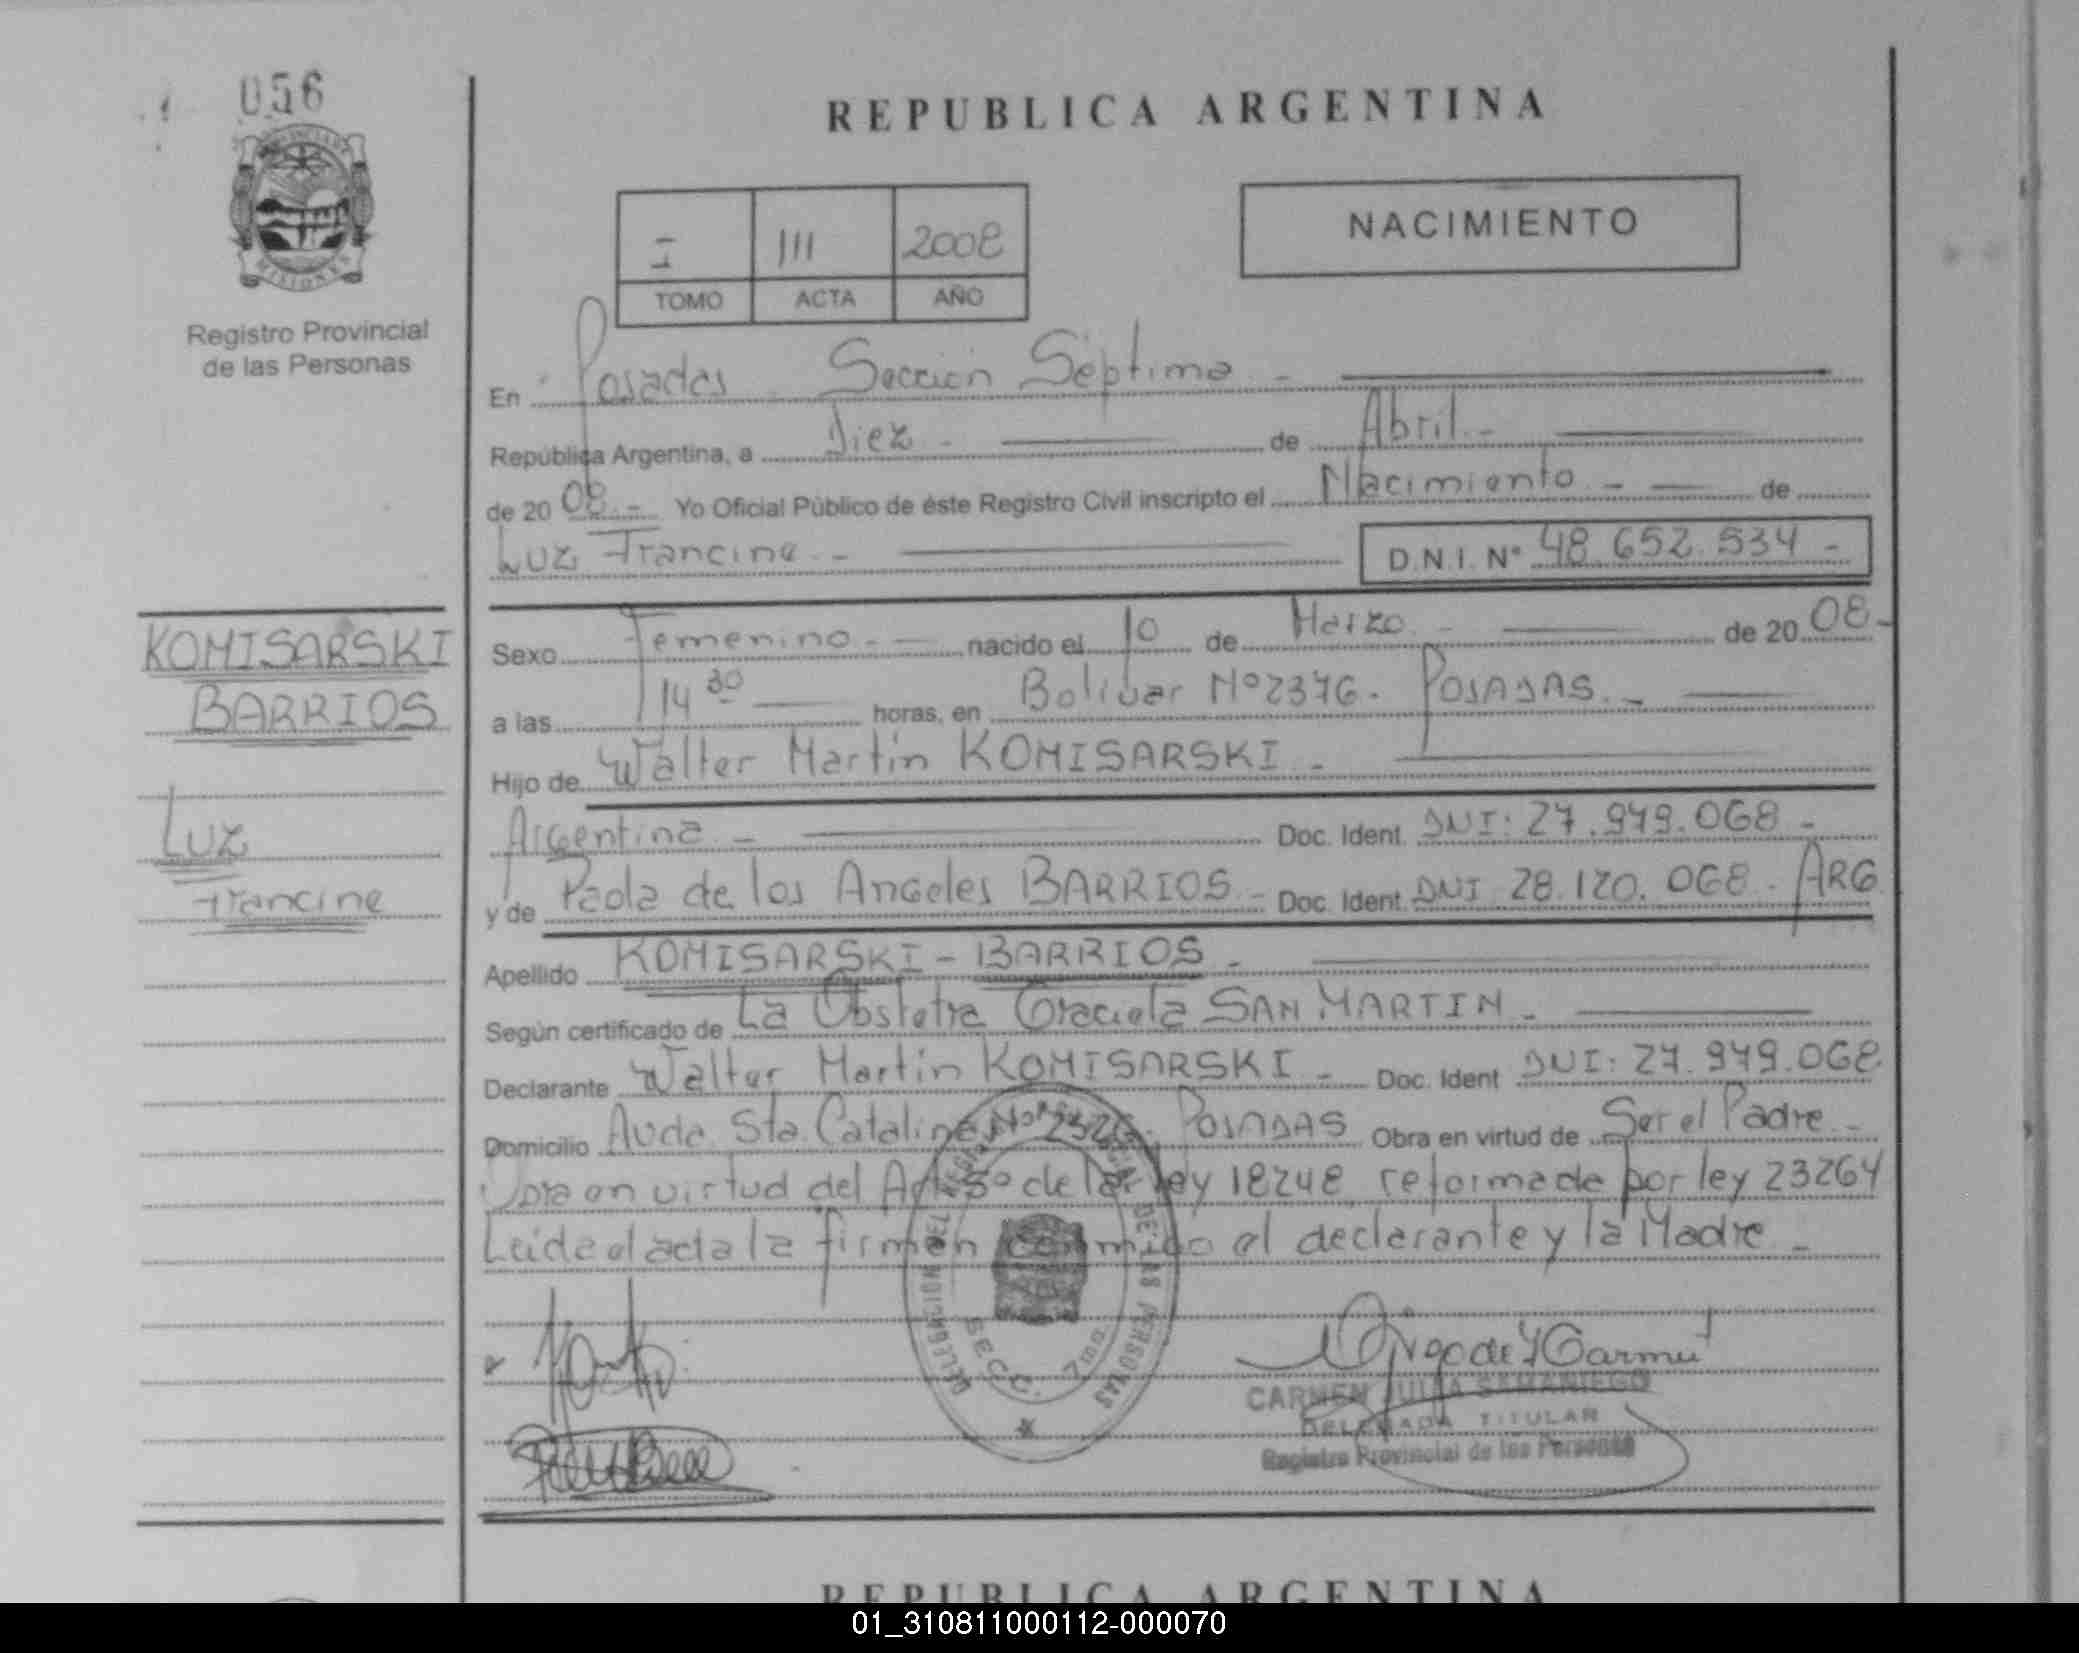 056
REPUBLICA ARGENTINA
I 111 2008
TOMO ACTA AÑO
NACIMIENTO
Registro Provincial
de las Personas
En Posadas Sección Séptima -
República Argentina, a Diez - de Abril -
de 2008 - Yo Oficial Público de éste Registro Civil inscripto el Nacimiento - de
Luz Francine - D.N.I. Nº 48.652.534 -
KOMISARSKI
BARRIOS
Luz
Francine
Sexo Femenino - nacido el 10 de Marzo - de 2008 -
a las 14 30 horas, en Bolivar Nº 2376 - POSADAS -
Hijo de Walter Martín KOMISARSKI -
Argentina - Doc. Ident. DNI: 27.949.068 -
y de Paola de los Angeles BARRIOS - Doc. Ident. DNI 28.120.068 - ARG
Apellido KOMISARSKI - BARRIOS -
Según certificado de La Obstetra Graciela SAN MARTIN -
Declarante Walter Martin KOMISARSKI - Doc. Ident DNI: 27.949.068
Domicilio Avda. Sta. Catalina Nº POSADAS Obra en virtud de Ser el Padre -
Obra en virtud del Art. 5º de la ley 18248 reformada por ley 23264
Leida el acta la firman conmigo el declarante y la Madre -
DELEGACION DEL REGISTRO PROVINCIAL DE LAS PERSONAS
SECC. 7ma
CARMEN JULIA SAMANIEGO
DELEGADA TITULAR
Registro Provincial de las Personas
REPUBLICA ARGENTINA
01_310811000112-000070